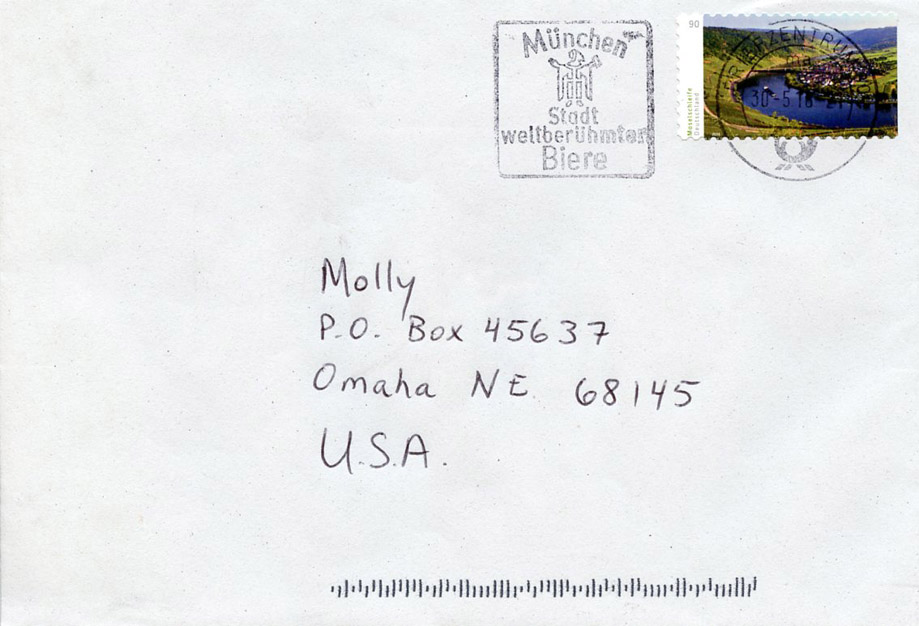 München
Stadt
weltberühmter
Biere
90
Moselschleife
Deutschland
Molly
P.O. Box 45637
Omaha NE 68145
U.S.A.